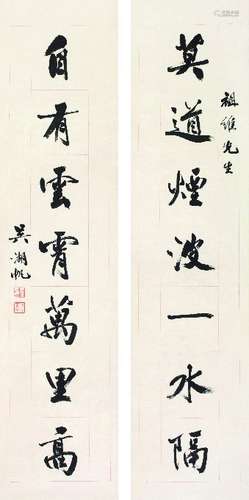 莫道煙波一水隔
祖維先生
自有雲霄萬里高
吴湖帆